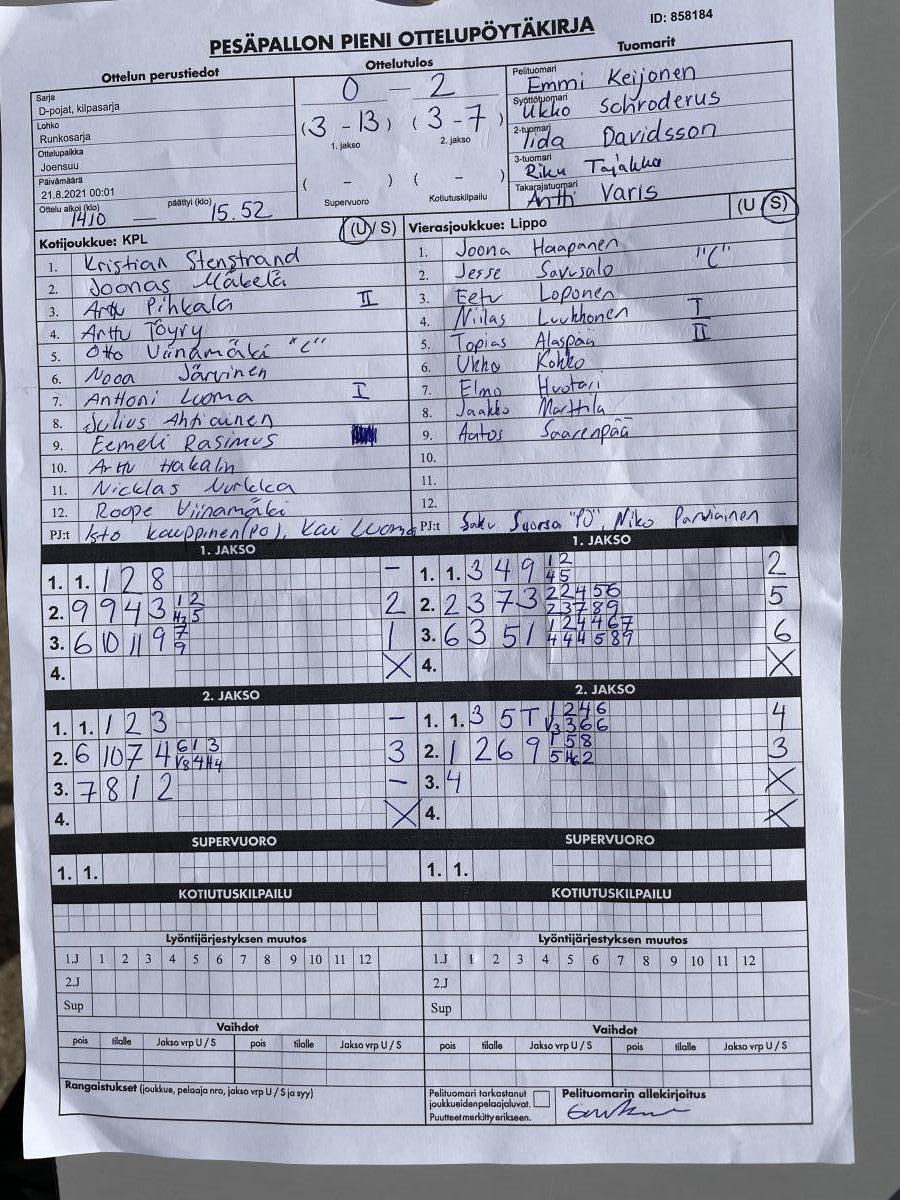 ID: 858184
PESÄPALLON PIENI OTTELUPÖYTÄKIRJA
Ottelun perustiedot
Sarja
D-pojat, kilpasarja
Lohko
Runkosarja
Ottelupaikka
Joensuu
Päivämäärä
21.8.2021 00:01
Ottelu alkoi (klo) 1410 — päättyi (klo) 15.52
Ottelutulos
0 - 2
(3 - 13) (3 - 7)
1. jakso 2. jakso
( - ) ( - )
Supervuoro Kotiutuskilpailu
Tuomarit
Pelituomari Emmi Keijonen
Syöttötuomari Ukko Schroderus
2-tuomari Iida Davidsson
3-tuomari Riku Tajakka
Takarajatuomari Antti Varis
Kotijoukkue: KPL (U / S)
1. Kristian Stenstrand
2. Joonas Mäkelä
3. Arttu Pihkala II
4. Arttu Töyry
5. Otto Viinamäki "C"
6. Nooa Järvinen
7. Anthoni Luoma I
8. Julius Ahtiainen
9. Eemeli Rasimus
10. Arttu Hakalin
11. Nicklas Nurkka
12. Roope Viinamäki
PJ:t Isto Kauppinen(po), Kai Luoma
Vierasjoukkue: Lippo (U / S)
1. Joona Haapanen "C"
2. Jesse Savusalo
3. Eetu Loponen
4. Niilas Luukkonen I
5. Topias Alaspää II
6. Ukko Kokko
7. Elmo Huotari
8. Jaakko Marttila
9. Aatos Saarenpää
10.
11.
12.
PJ:t Saku Suorsa "PO", Niko Parviainen
1. JAKSO
1. 1. 1 2 8 -
2. 9 9 4 3 1 2 2
3. 6 10 11 9 7 9 1
4. X
1. JAKSO
1. 1. 3 4 9 1 2 4 5 2
2. 2 3 7 3 2 2 4 5 6 2 3 7 8 9 5
3. 6 3 5 1 1 2 4 4 6 7 4 4 4 5 8 9 6
4. X
2. JAKSO
1. 1. 1 2 3 -
2. 6 10 7 4 6 1 3 V8 4 H4 3
3. 7 8 1 2 -
4. X
2. JAKSO
1. 1. 3 5 T 1 2 4 6 V3 3 6 6 4
2. 1 2 6 9 1 5 8 5 H6 2 3
3. 4 X
4. X
SUPERVUORO
1. 1.
SUPERVUORO
1. 1.
KOTIUTUSKILPAILU
KOTIUTUSKILPAILU
Lyöntijärjestyksen muutos
1.J 1 2 3 4 5 6 7 8 9 10 11 12
2.J
Sup
Lyöntijärjestyksen muutos
1.J 1 2 3 4 5 6 7 8 9 10 11 12
2.J
Sup
Vaihdot
pois tilalle Jakso vrp U / S pois tilalle Jakso vrp U / S
Vaihdot
pois tilalle Jakso vrp U / S pois tilalle Jakso vrp U / S
Rangaistukset (joukkue, pelaaja nro, jakso vrp U / S ja syy)
Pelituomari tarkastanut
joukkueiden pelaajaluvat.
Puutteet merkitty erikseen.
Pelituomarin allekirjoitus